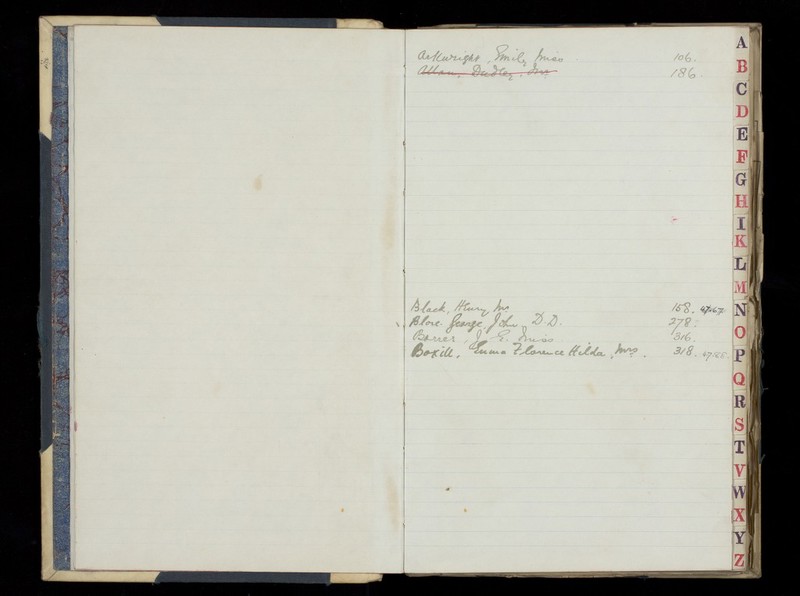 Arkwright, Emily Miss 106.
Allan, Dudley, Mrs 186.
Black, Henry Mrs 158. 47267
Blore George John D.D. 278.
J. E. Miss 316.
Boxill, Emma Florence Hilda, Mrs. 318.
A
B
C
D
E
F
G
H
I
K
L
M
N
O
P
Q
R
S
T
V
W
X
Y
Z